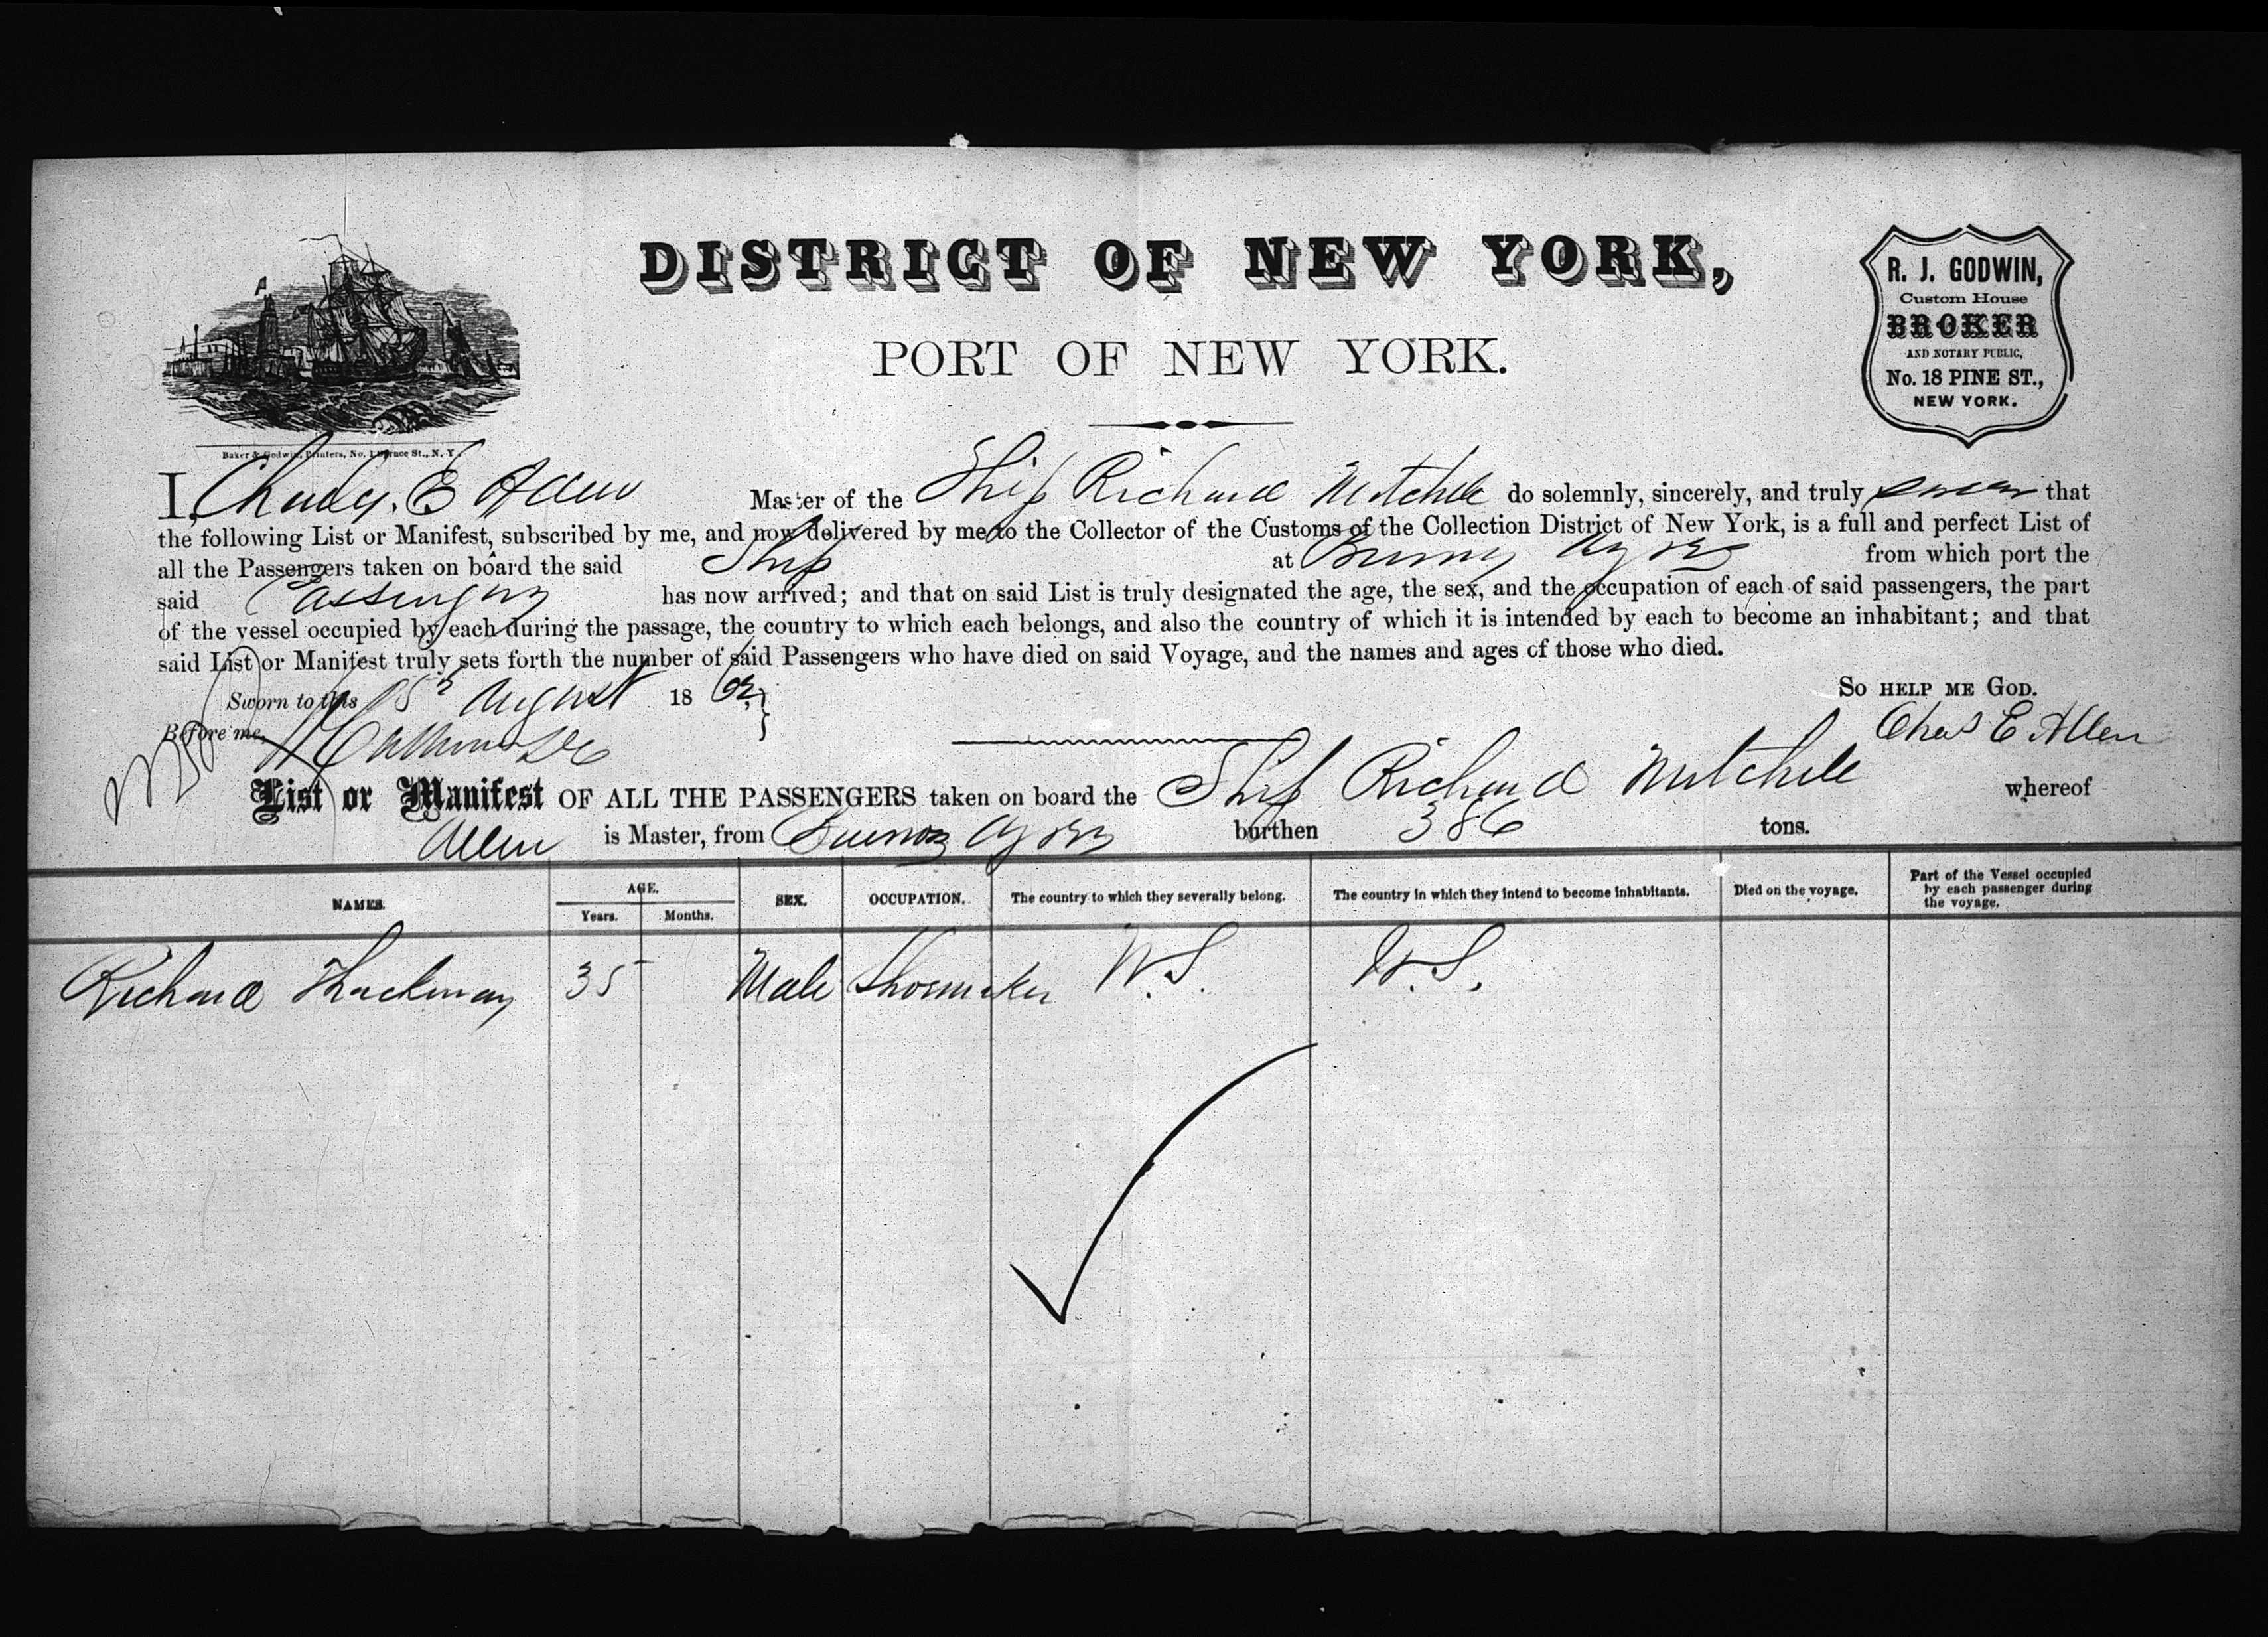 DISTRICT OF NEW YORK,
PORT OF NEW YORK.
R. J. GODWIN,
Custom House
BROKER
AND NOTARY PUBLIC,
No. 18 PINE ST.,
NEW YORK.
Baker & Godwin, Printers, No. 1 Spruce St., N. Y.
I, Charles. E Allen Master of the Ship Richard Mitchell do solemnly, sincerely, and truly swear that
the following List or Manifest, subscribed by me, and now delivered by me to the Collector of the Customs of the Collection District of New York, is a full and perfect List of
all the Passengers taken on board the said Ship at Ayres from which port the
said Passengers has now arrived; and that on said List is truly designated the age, the sex, and the occupation of each of said passengers, the part
of the vessel occupied by each during the passage, the country to which each belongs, and also the country of which it is intended by each to become an inhabitant; and that
said List or Manifest truly sets forth the number of said Passengers who have died on said Voyage, and the names and ages of those who died.
Sworn to this August 18 So HELP ME GOD.
Before me, Chas E Allen
List or Manifest OF ALL THE PASSENGERS taken on board the Ship Richard Mitchell whereof
Allen is Master, from Buenos Ayres burthen 386 tons.
NAMES. AGE. Years. Months. SEX. OCCUPATION. The country to which they severally belong. The country in which they intend to become inhabitants. Died on the voyage. Part of the Vessel occupied by each passenger during the voyage.
Richard 35 Male Shoemaker U.S. U.S.